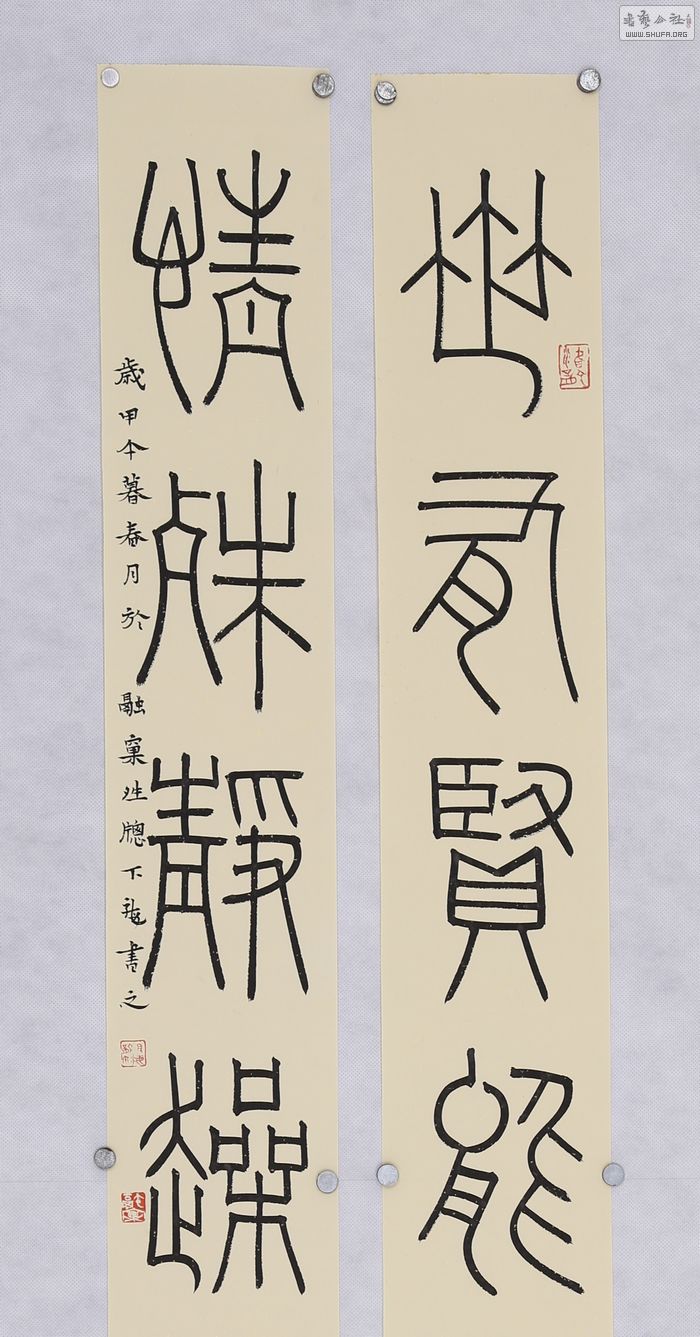 書藝公社
WWW.SHUFA.ORG
世有賢能
情殊靜趮
歲甲午暮春月於融窠牕下書之